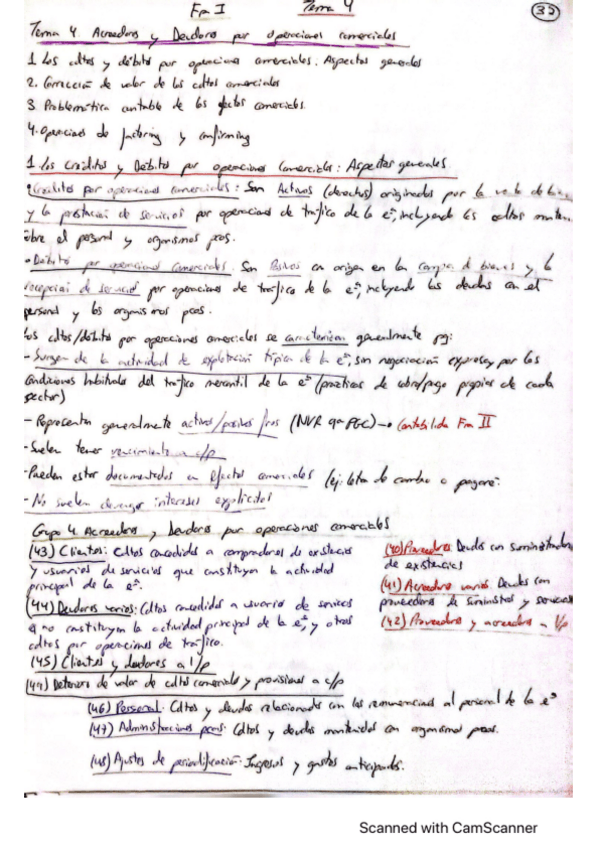 Fra I Tema 4 32
Tema 4. Acreedores y Deudores por operaciones comerciales
1. Los cdtos y débitos por operaciones comerciales. Aspectos generales
2. Corrección de valor de los cdtos comerciales
3. Problemática contable de los efectos comerciales.
4. Operaciones de factoring y confirming
1. Los Créditos y Débitos por operaciones comerciales: Aspectos generales.
Créditos por operaciones comerciales: Son Activos (derechos) originados por la venta de
y la prestación de servicios por operaciones de tráfico de la eª, incluyendo los cdtos
sobre el personal y organismos pcos.
• Débitos por operaciones comerciales. Son Pasivos con origen en la compra de bienes y la
recepción de servicios por operaciones de tráfico de la eª, incluyendo las deudas con el
personal y los organismos pcos.
Los cdtos/débitos por operaciones comerciales se caracterizan generalmente pq:
- Surgen de la actividad de explotación típica de la eª, sin negociación expresa y por las
condiciones habituales del tráfico mercantil de la eª (prácticas de cobro/pago propias de cada
sector)
- Representan generalmente activos/pasivos fros (NVR 9ª PGC) → Contabilidad Fra II
- Suelen tener vencimiento a c/p
- Pueden estar documentados en efectos comerciales (ej: letra de cambio o pagaré.
- No suelen devengar intereses explícitos
Grupo 4. Acreedores y Deudores por operaciones comerciales
(43) Clientes: Cdtos concedidos a compradores de existencias
y usuarios de servicios que constituyen la actividad
principal de la eª.
(44) Deudores varios: Cdtos concedidos a usuarios de servicios
q no constituyen la actividad principal de la eª, y otros
cdtos por operaciones de tráfico.
(45) Clientes y deudores a l/p
(49) Deterioro de valor de cdtos comerciales y provisiones a c/p
(40) Proveedores: Deudas con suministradores
de existencias
(41) Acreedores varios: Deudas con
proveedores de suministros y servicios
(42) Proveedores y acreedores a l/p
(46) Personal: Cdtos y deudas relacionados con las remuneraciones al personal de la eª
(47) Administraciones pcas: Cdtos y deudas mantenidos con organismos pcos.
(48) Ajustes de periodificación: Ingresos y gastos anticipados.
Scanned with CamScanner